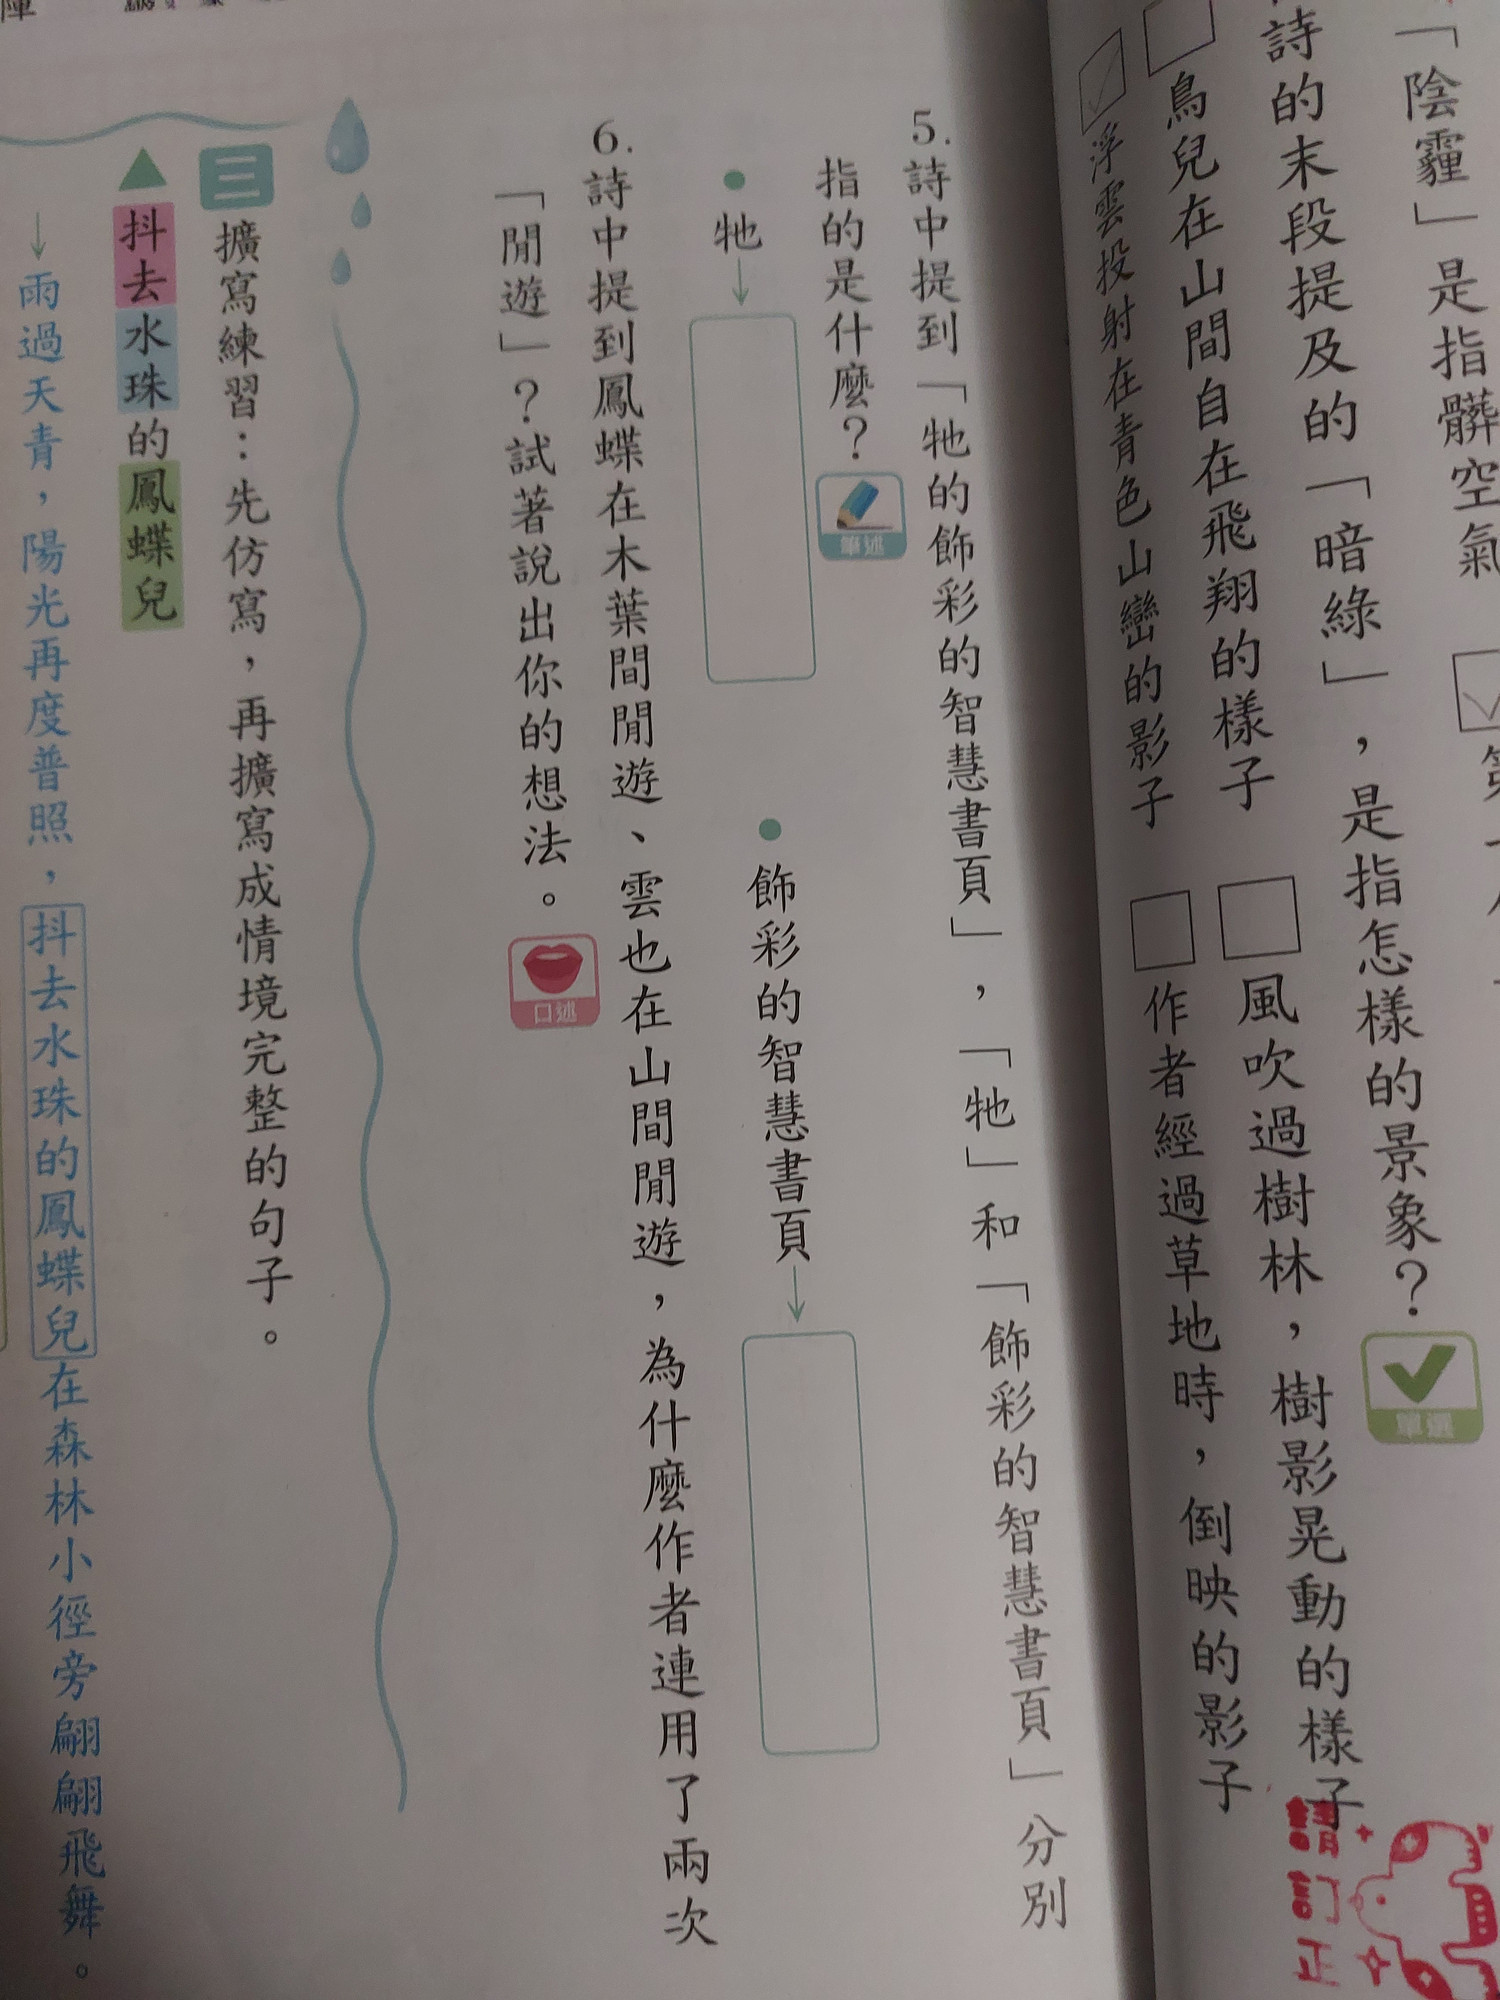 「陰霾」是指髒空氣
詩的末段提及的「暗綠」，是指怎樣的景象？
單選
鳥兒在山間自在飛翔的樣子
風吹過樹林，樹影晃動的樣子
浮雲投射在青色山巒的影子
作者經過草地時，倒映的影子
請訂正
5.詩中提到「牠的飾彩的智慧書頁」，「牠」和「飾彩的智慧書頁」分別
指的是什麼？
筆述
●牠→
●飾彩的智慧書頁→
6.詩中提到鳳蝶在木葉間閒遊、雲也在山間閒遊，為什麼作者連用了兩次
「閒遊」？試著說出你的想法。
口述
三 擴寫練習：先仿寫，再擴寫成情境完整的句子。
▲抖去水珠的鳳蝶兒
→雨過天青，陽光再度普照，抖去水珠的鳳蝶兒在森林小徑旁翩翩飛舞。